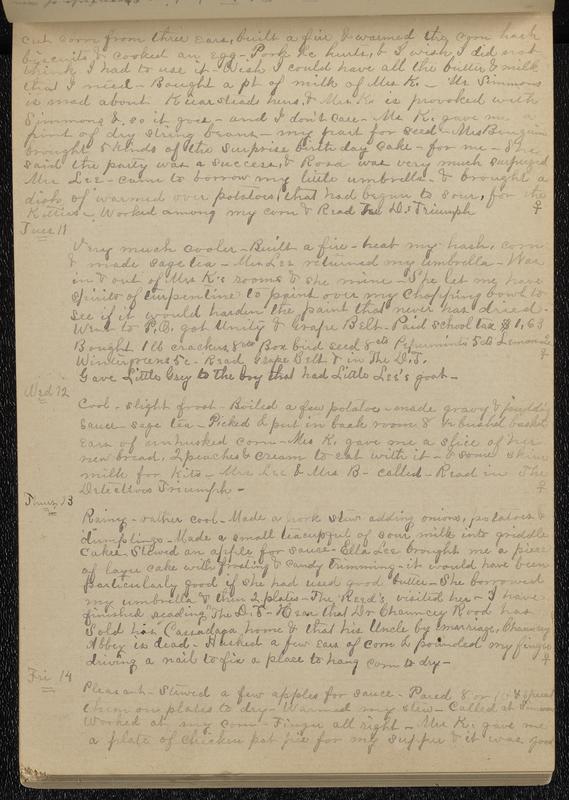 cut corn from three ears, built a fire & warmed the corn hash
biscuits & cooked an egg - Pork &c hurts, & I wish I did not
think I had to use it - Wish I could have all the butter & milk
that I need - Bought a pt of milk of Mrs K. - Mr Simmons
is mad about Kiearsteads hens, & Mrs. K. is provoked with
Simmons & so it goes, - and I don't care - Mrs K. gave me a
pint of dry string beans - my part for seed - Mrs
brought 5 kinds of the surprise birthday cake - for me - She
said the party was a success, & Rosa was very much surprised
Mrs Lee - came to borrow my little umbrella - & brought a
dish of warmed over potatoes, that had begun to sour, for the
Kitties - Worked among my corn & Read The D. Triumph ♀
Tues 11
Very much cooler - Built a fire - heat my hash, corn
& made sage tea - Mrs Lee returned my umbrella - Was
in & out of Mrs K's rooms & she mine - She let me have
spirits of turpentine to paint over my Chopping bowl to
see if it would harden the paint that never has dried -
Went to P.O. got Unity & Grape Belt - Paid school tax $1,63
Bought 1 lb crackers 8cts Box bird seed 8cts Peppermints 5cts Lemon
Wintergreens 5c - Read Grape Belt & in The D.T. ♀
Gave Little Grey to the boy that had Little Lee's goat -
Wed 12
Cool - slight frost - Boiled a few potatoes - made gravy & pudding
sauce - sage tea - Picked & put in back room 8 ½ bushel baskets
ears of unhusked corn - Mrs K. gave me a slice of her
new bread, 2 peaches & cream to eat with it - & some skim
milk for Kits - Mrs Lee & Mrs B - called - Read in The
Detectives Triumph - ♀
Thurs 13
Rainy - rather cool - Made a pork stew adding onions, potatoes &
dumplings - Made a small teacupful of sour milk into griddle
Cakes - Stewed an apple for sauce - Ella Lee brought me a piece
of layer cake with frosting & candy trimming - it would have been
particularly good if she had used good butter - She borrowed
my umbrella & then 2 plates - The Reed's visited her - I have
finished reading "The D.T." - Hear that Dr Chauncey Rood has
Sold his Cassadaga home & that his Uncle by marriage, Chauncey
Abbey is dead - Husked a few ears of corn & pounded my finger
driving a nail to fix a place to hang corn to dry - ♀
Fri 14
Pleasant - Stewed a few apples for sauce - Pared 8 or 10 & spread
them on plates to dry - Warmed my stew - Called at
Worked at my corn - Finger all right - Mrs K. gave me
a plate of chicken pot pie for my supper & it was good